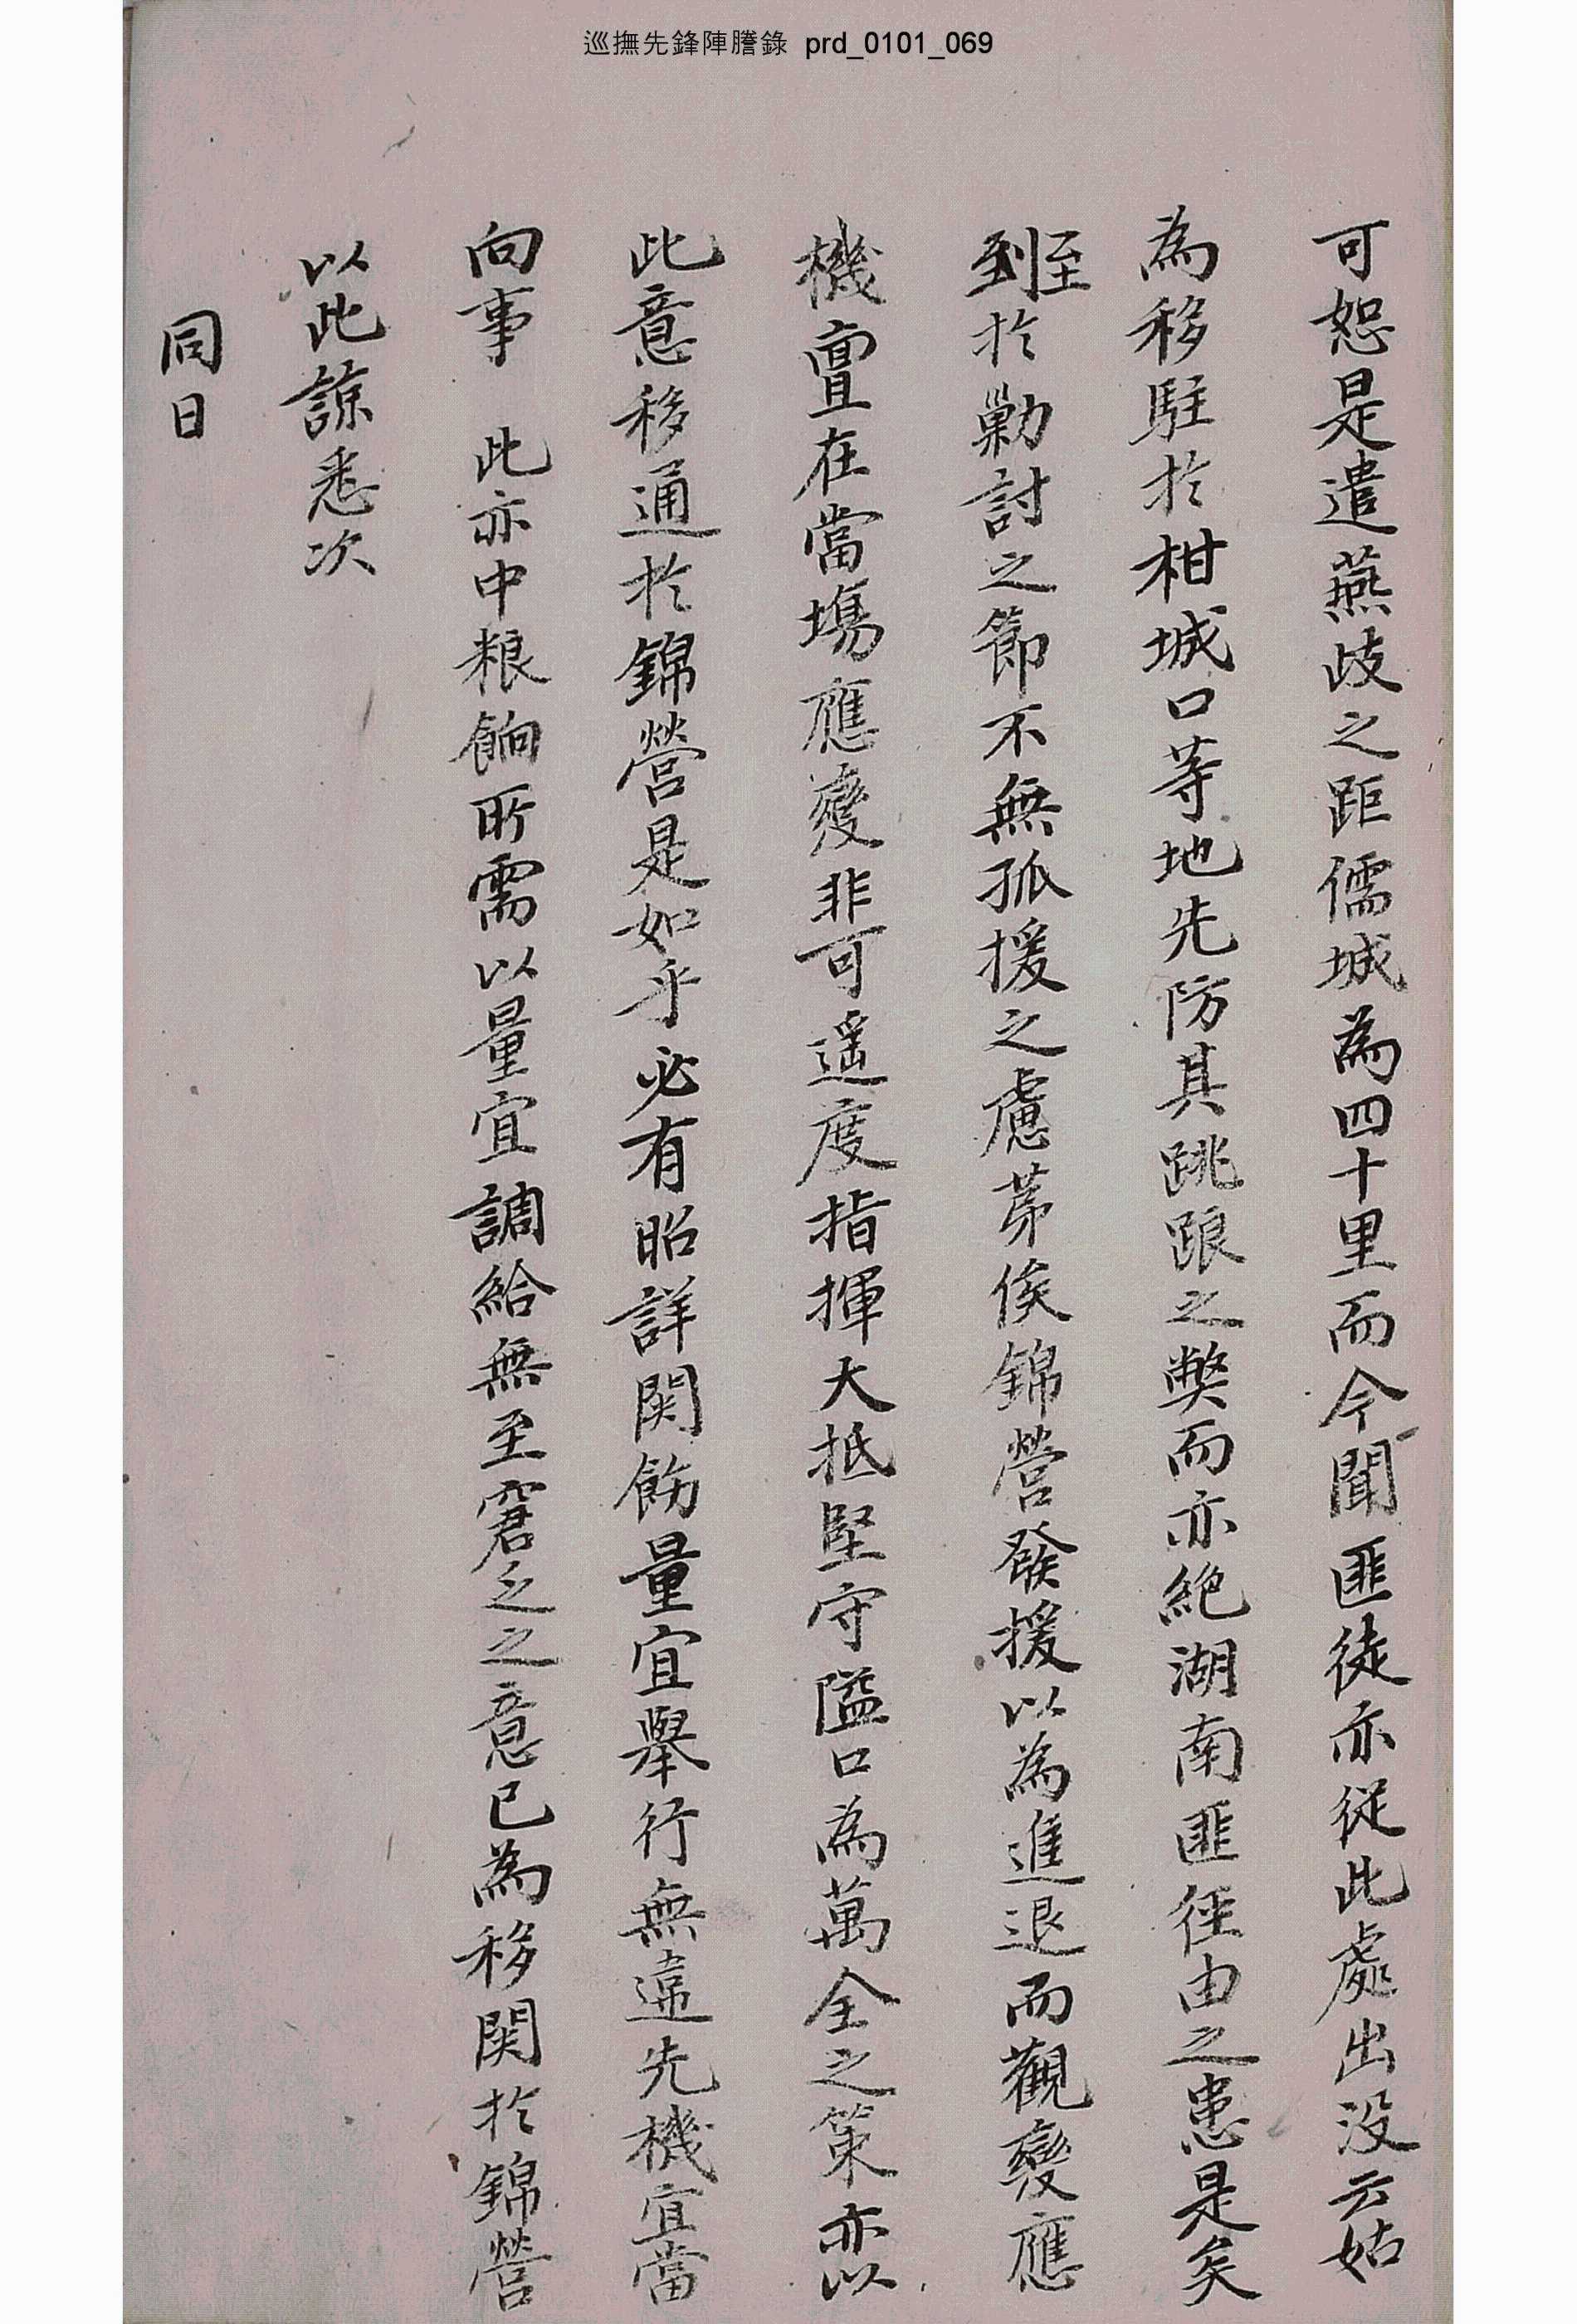 巡撫先鋒陣謄錄 prd_0101_069
可恕是遣燕歧之距儒城為四十里而今聞匪徒亦從此處出没云姑
為移駐於柑城口等地先防其跳踉之獘而亦絶湖南匪徑由之患是矣
到至於勦討之節不無孤援之慮苐俟錦營發援以為進退而觀變應
機亶在當塲應變非可遥度指揮大抵堅守隘口為萬全之策亦以
此意移通於錦營是如乎必有昭詳関飭量宜舉行無違先機宜當
向事 此亦中粮餉所需以量宜調給無至窘乏之意已為移関於錦營
以此諒悉次
同日